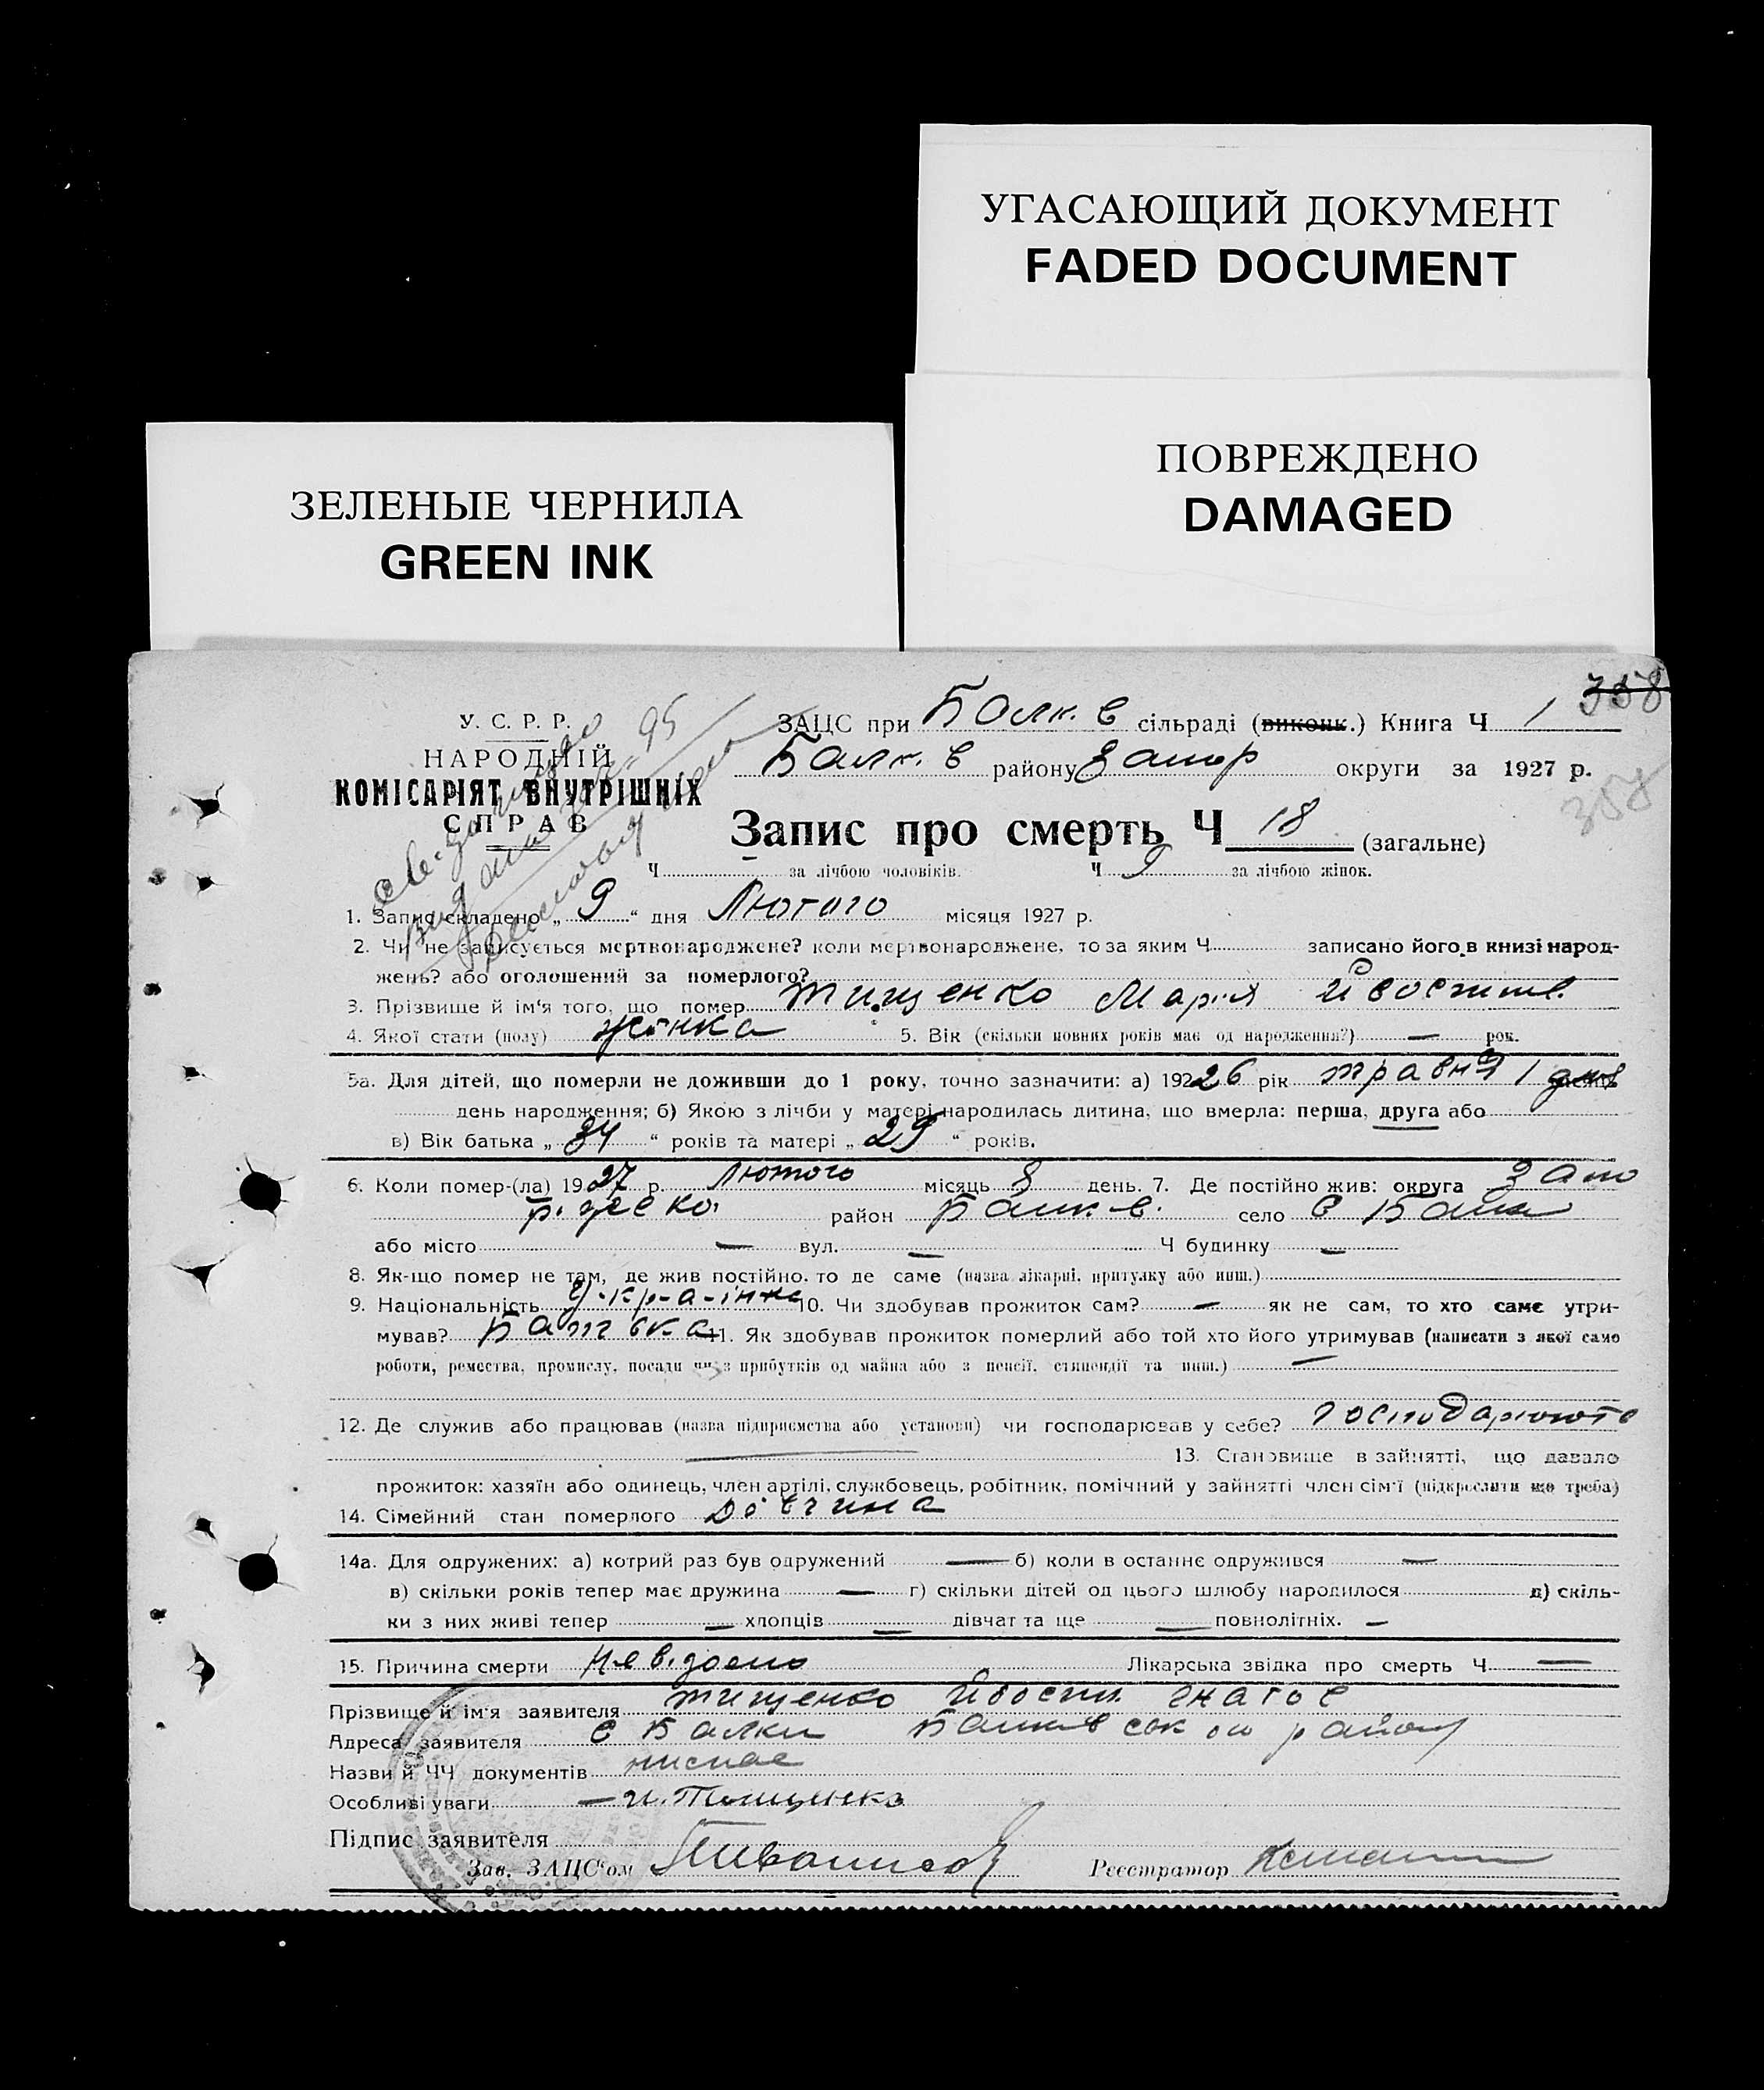 УГАСАЮЩИЙ ДОКУМЕНТ
FADED DOCUMENT
ПОВРЕЖДЕНО
DAMAGED
ЗЕЛЕНЫЕ ЧЕРНИЛА
GREEN INK
358
У. С. Р. Р.
НАРОДНІЙ
КОМІСАРІЯТ ВНУТРІШНІХ
СПРАВ
ЗАЦС при Балк. в сільраді (виконк.) Книга Ч 1
Балк. в району Запор округи за 1927 р.
358
Запис про смерть Ч 18 (загальне)
Ч за лічбою чоловіків. Ч 9 за лічбою жінок.
1. Запис складено „ 9 “ дня Лютого місяця 1927 р.
2. Чи не записується мертвонароджене? коли мертвонароджене, то за яким Ч записано його в книзі народ-
жень? або оголошений за померлого?
3. Прізвище й ім'я того, що помер Тищенко Марія
4. Якої стати (полу) жінка 5. Вік (скільки повних років має од народження?) — рок.
5а. Для дітей, що померли не доживши до 1 року, точно зазначити: а) 192 26 рік травня 1 дня
день народження; б) Якою з лічби у матері народилась дитина, що вмерла: перша, друга або
в) Вік батька „ 34 “ років та матері „ 29 “ років.
6. Коли помер-(ла) 19 27 р. Лютого місяць 8 день. 7. Де постійно жив: округа Запо
район Балк. в. село с Балки
або місто — вул. — Ч будинку —
8. Як-що помер не там, де жив постійно, то де саме (назва лікарні, притулку або инш.)
9. Національність У-кр-а-інка 10. Чи здобував прожиток сам? — як не сам, то хто саме утри-
мував? Батька 11. Як здобував прожиток померлий або той хто його утримував (написати з якої само
роботи, ремества, промислу, посади чи з прибутків од майна або з пенсії, стипендії та инш.) —
12. Де служив або працював (назва підприємства або установи) чи господарював у себе? господарюють
13. Становище в зайнятті, що давало
прожиток: хазяїн або одинець, член артілі, службовець, робітник, помічний у зайнятті член сім'ї (підкреслити що треба)
14. Сімейний стан померлого дівчина
14а. Для одружених: а) котрий раз був одружений — б) коли в останнє одружився —
в) скільки років тепер має дружина — г) скільки дітей од цього шлюбу народилося д) скіль-
ки з них живі тепер — хлопців — дівчат та ще — повнолітніх. —
15. Причина смерти Невідомо Лікарська звідка про смерть Ч —
Прізвище й ім'я заявителя Тищенко Гнатов
Адреса заявителя с Балки район
Назви й ЧЧ документів
Особливі уваги —
Підпис заявителя
Зав. ЗАЦС'ом
Реєстратор